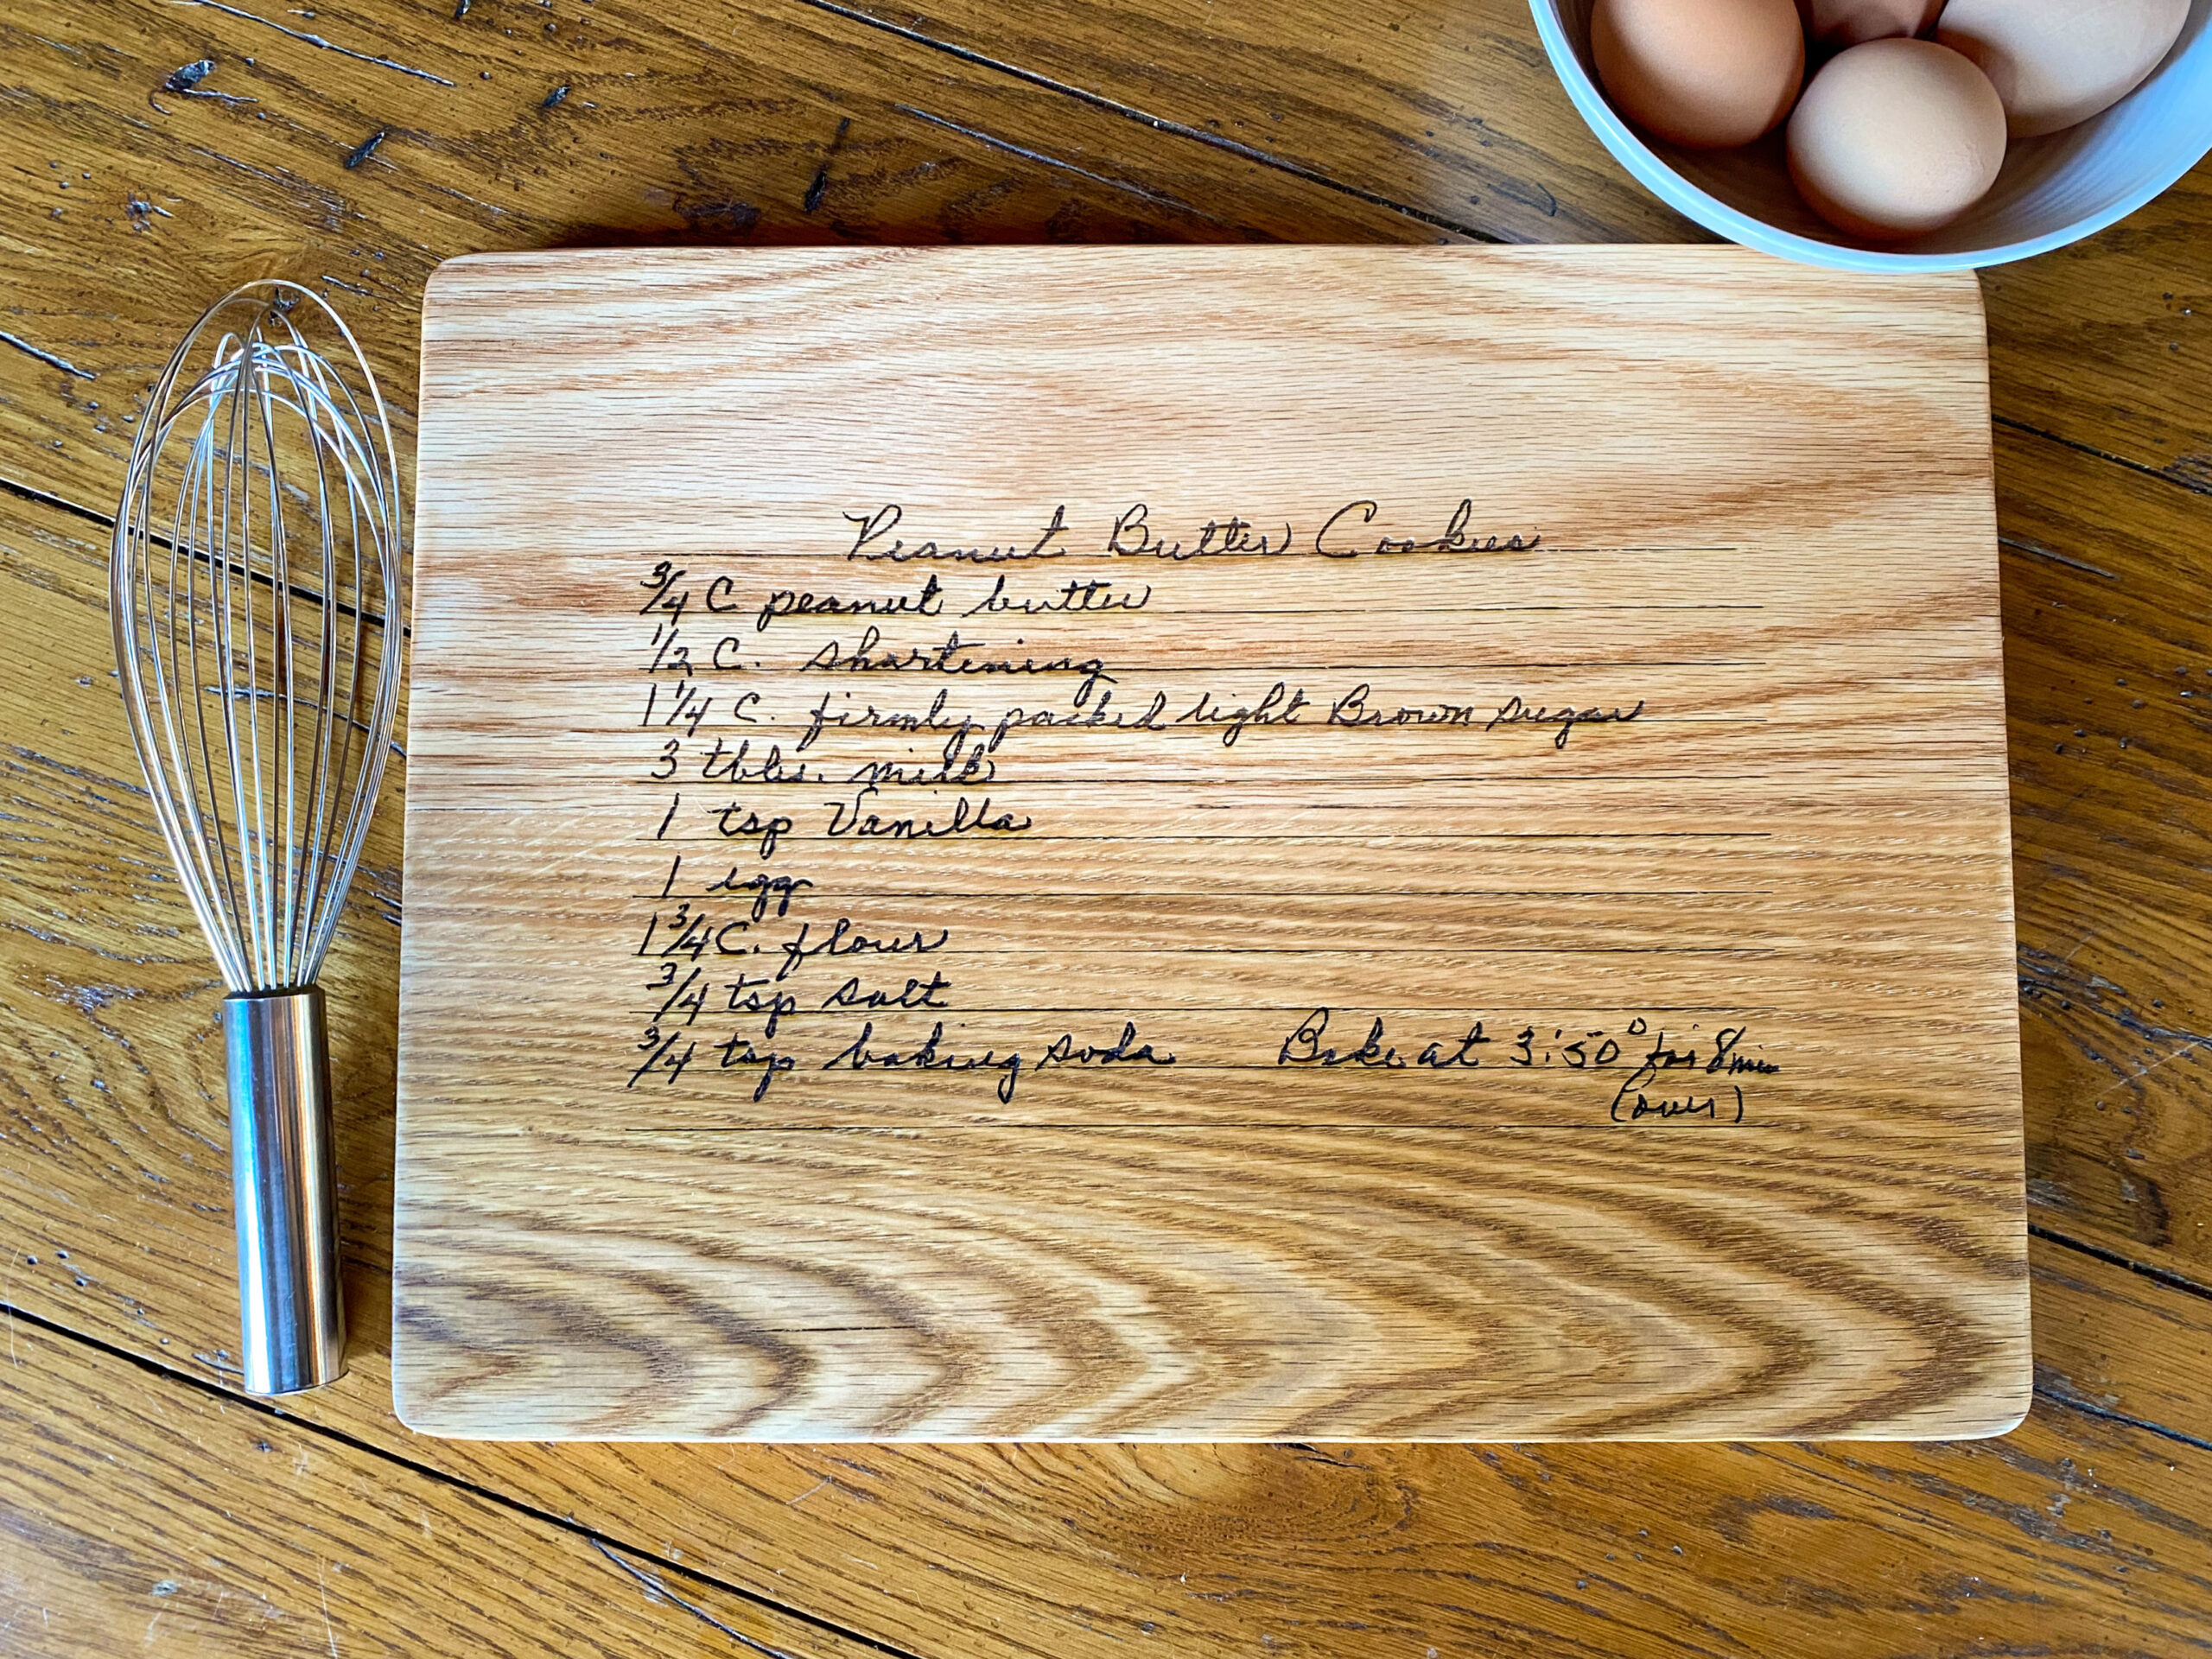 Peanut Butter Cookies
3/4 C peanut butter
1/2 C. shortening
1 1/4 C. firmly packed light Brown sugar
3 tbls. milk
1 tsp Vanilla
1 egg
1 3/4 C. flour
3/4 tsp salt
3/4 tsp baking soda Bake at 350° for 8 min
(over)